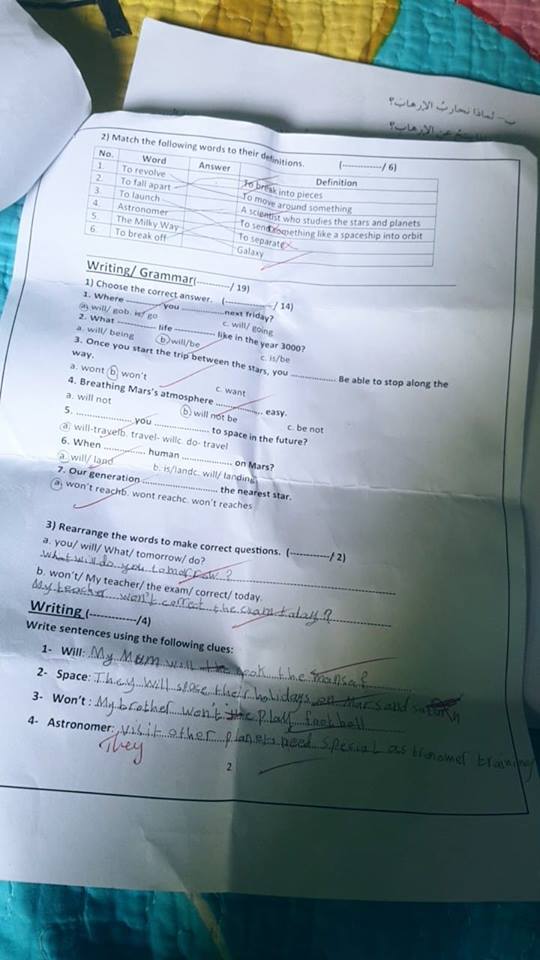 ب- لماذا نحارب الإرهاب؟
الإرهاب؟
2) Match the following words to their definitions. (------------/ 6)
No. Word Answer Definition
1. To revolve To break into pieces
2. To fall apart To move around something
3. To launch A scientist who studies the stars and planets
4. Astronomer To send something like a spaceship into orbit
5. The Milky Way To separate
6. To break off Galaxy
Writing/ Grammar(----------/ 19)
1) Choose the correct answer. (------------/ 14)
1. Where ............ you ............ next friday?
a) will/ gob. is/ go c. will/ going
2. What ............ life ............ like in the year 3000?
a. will/ being b) will/be c. is/be
3. Once you start the trip between the stars, you ............... Be able to stop along the
way.
a. wont b) won't c. want
4. Breathing Mars's atmosphere ............... easy.
a. will not b) will not be c. be not
5. ............... you ............... to space in the future?
a) will-travelb. travel- willc. do- travel
6. When ............ human ............ on Mars?
a) will/ land b. is/landc. will/ landing
7. Our generation ..................... the nearest star.
a) won't reachb. wont reachc. won't reaches
3) Rearrange the words to make correct questions. (------------/ 2)
a. you/ will/ What/ tomorrow/ do?
what will do you tomorrow ?
b. won't/ My teacher/ the exam/ correct/ today.
My teacher won't correct the exam today ?
Writing (------------/4)
Write sentences using the following clues:
1- Will: My Mum will cook the mansaf
2- Space: They will their holidays on Mars and
3- Won't : My brother won't play foot ball
4- Astronomer: visit other planets need special as tronomer training
They
2